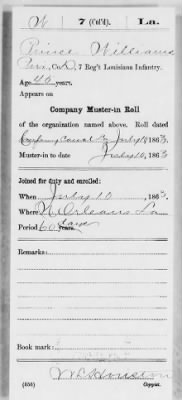 W 7 (Col'd). La.
Prince Williams
Priv., Co. K, 7 Reg't Louisiana Infantry.
Age 45 years.
Appears on
Company Muster-in Roll
of the organization named above. Roll dated
July 18, 1863.
Muster-in to date July 10, 1863.
Joined for duty and enrolled:
When July 10, 1863.
Where N. Orleans La
Period 60 days years.
Remarks:
Book mark:
(356) Copyist.